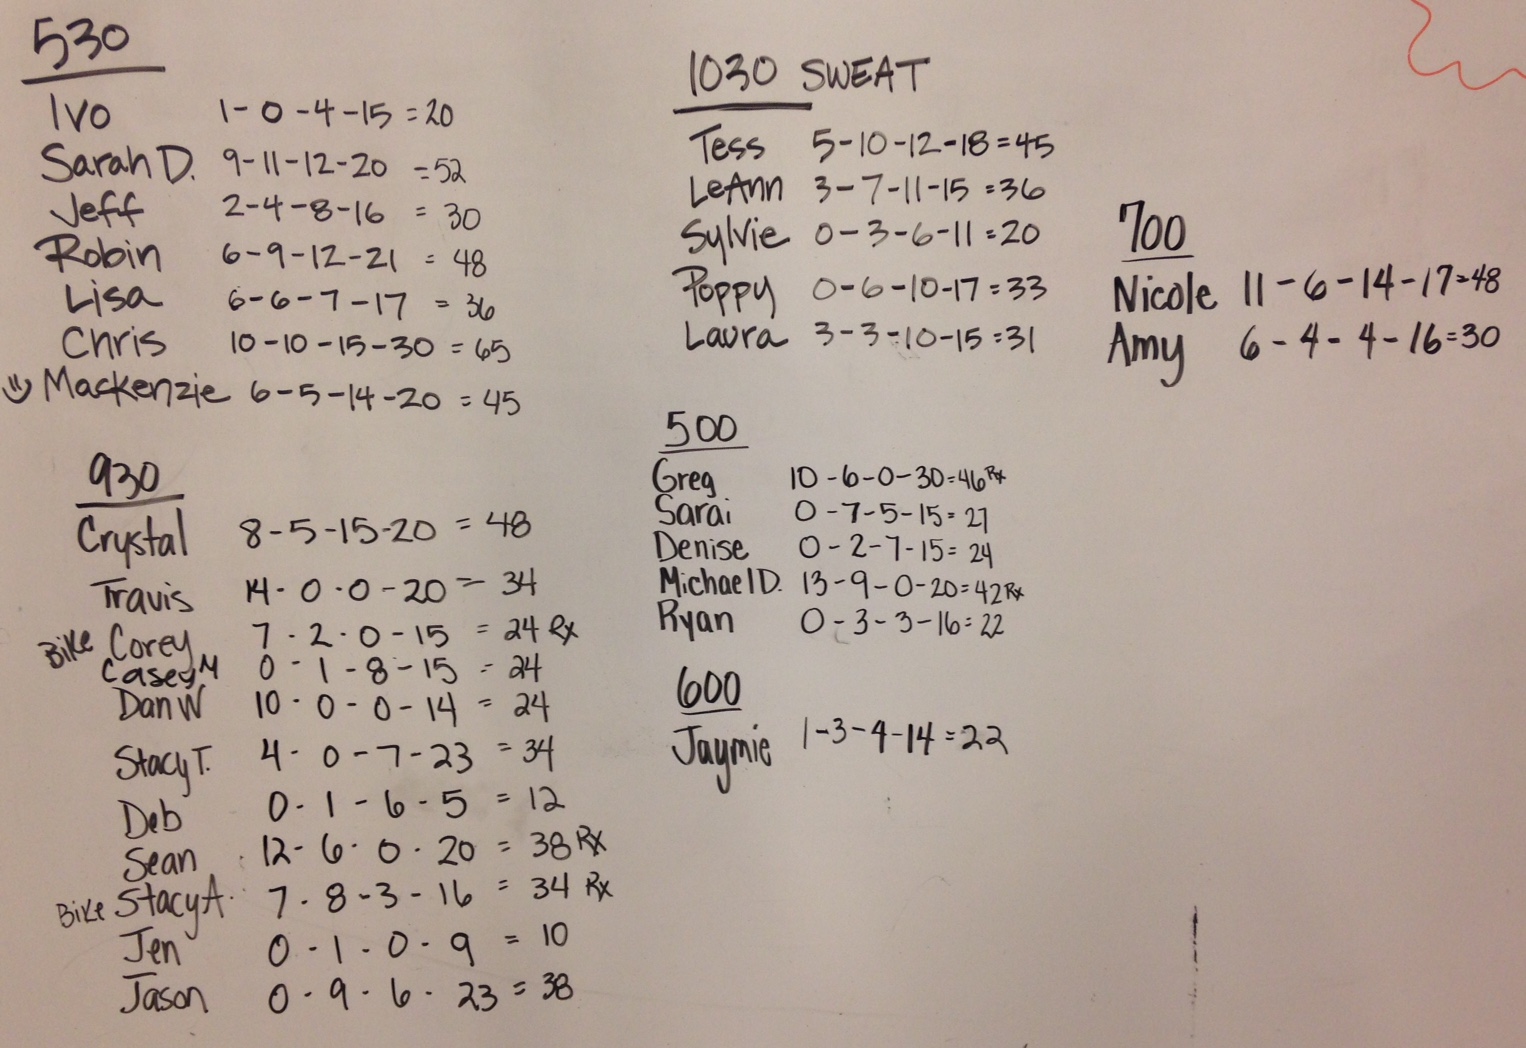 530
Ivo 1-0-4-15 = 20
Sarah D. 9-11-12-20 = 52
Jeff 2-4-8-16 = 30
Robin 6-9-12-21 = 48
Lisa 6-6-7-17 = 36
Chris 10-10-15-30 = 65
Mackenzie 6-5-14-20 = 45
930
Crystal 8-5-15-20 = 48
Travis 14-0-0-20 = 34
Bike Corey 7-2-0-15 = 24 Rx
Casey M 0-1-8-15 = 24
Dan W 10-0-0-14 = 24
Stacy T. 4-0-7-23 = 34
Deb 0-1-6-5 = 12
Sean 12-6-0-20 = 38 Rx
Bike Stacy A. 7-8-3-16 = 34 Rx
Jen 0-1-0-9 = 10
Jason 0-9-6-23 = 38
1030 SWEAT
Tess 5-10-12-18 = 45
LeAnn 3-7-11-15 = 36
Sylvie 0-3-6-11 = 20
Poppy 0-6-10-17 = 33
Laura 3-3-10-15 = 31
500
Greg 10-6-0-30 = 46 Rx
Sarai 0-7-5-15 = 27
Denise 0-2-7-15 = 24
Michael D. 13-9-0-20 = 42 Rx
Ryan 0-3-3-16 = 22
600
Jaymie 1-3-4-14 = 22
700
Nicole 11-6-14-17 = 48
Amy 6-4-4-16 = 30